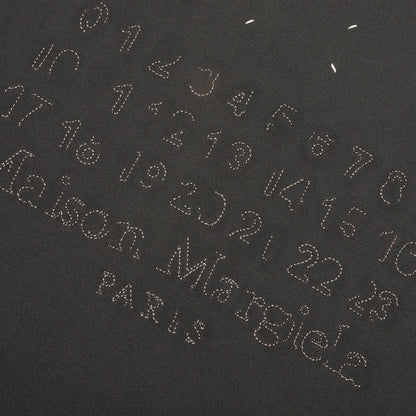 0 1 2 3 4 5 6 7 8
10 11 12 13 14 15 16
17 18 19 20 21 22 23
Maison Margiela
PARIS